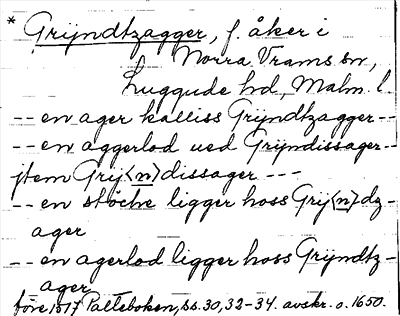 * Grijndtzagger, f. åker i
Norra Vrams sn,
Luggude hd, Malm. l.
-- en ager kalliss Grijndtzagger --
-- en aggerlod ued Grijndissager --
jtem Grij<n>dissager ---
-- en støche ligger hoss Grij<n>dz-
ager
-- en agerlod ligger hoss Grijndtz-
ager
före 1517 Palteboken, ss. 30, 33-34. avskr. o. 1650.